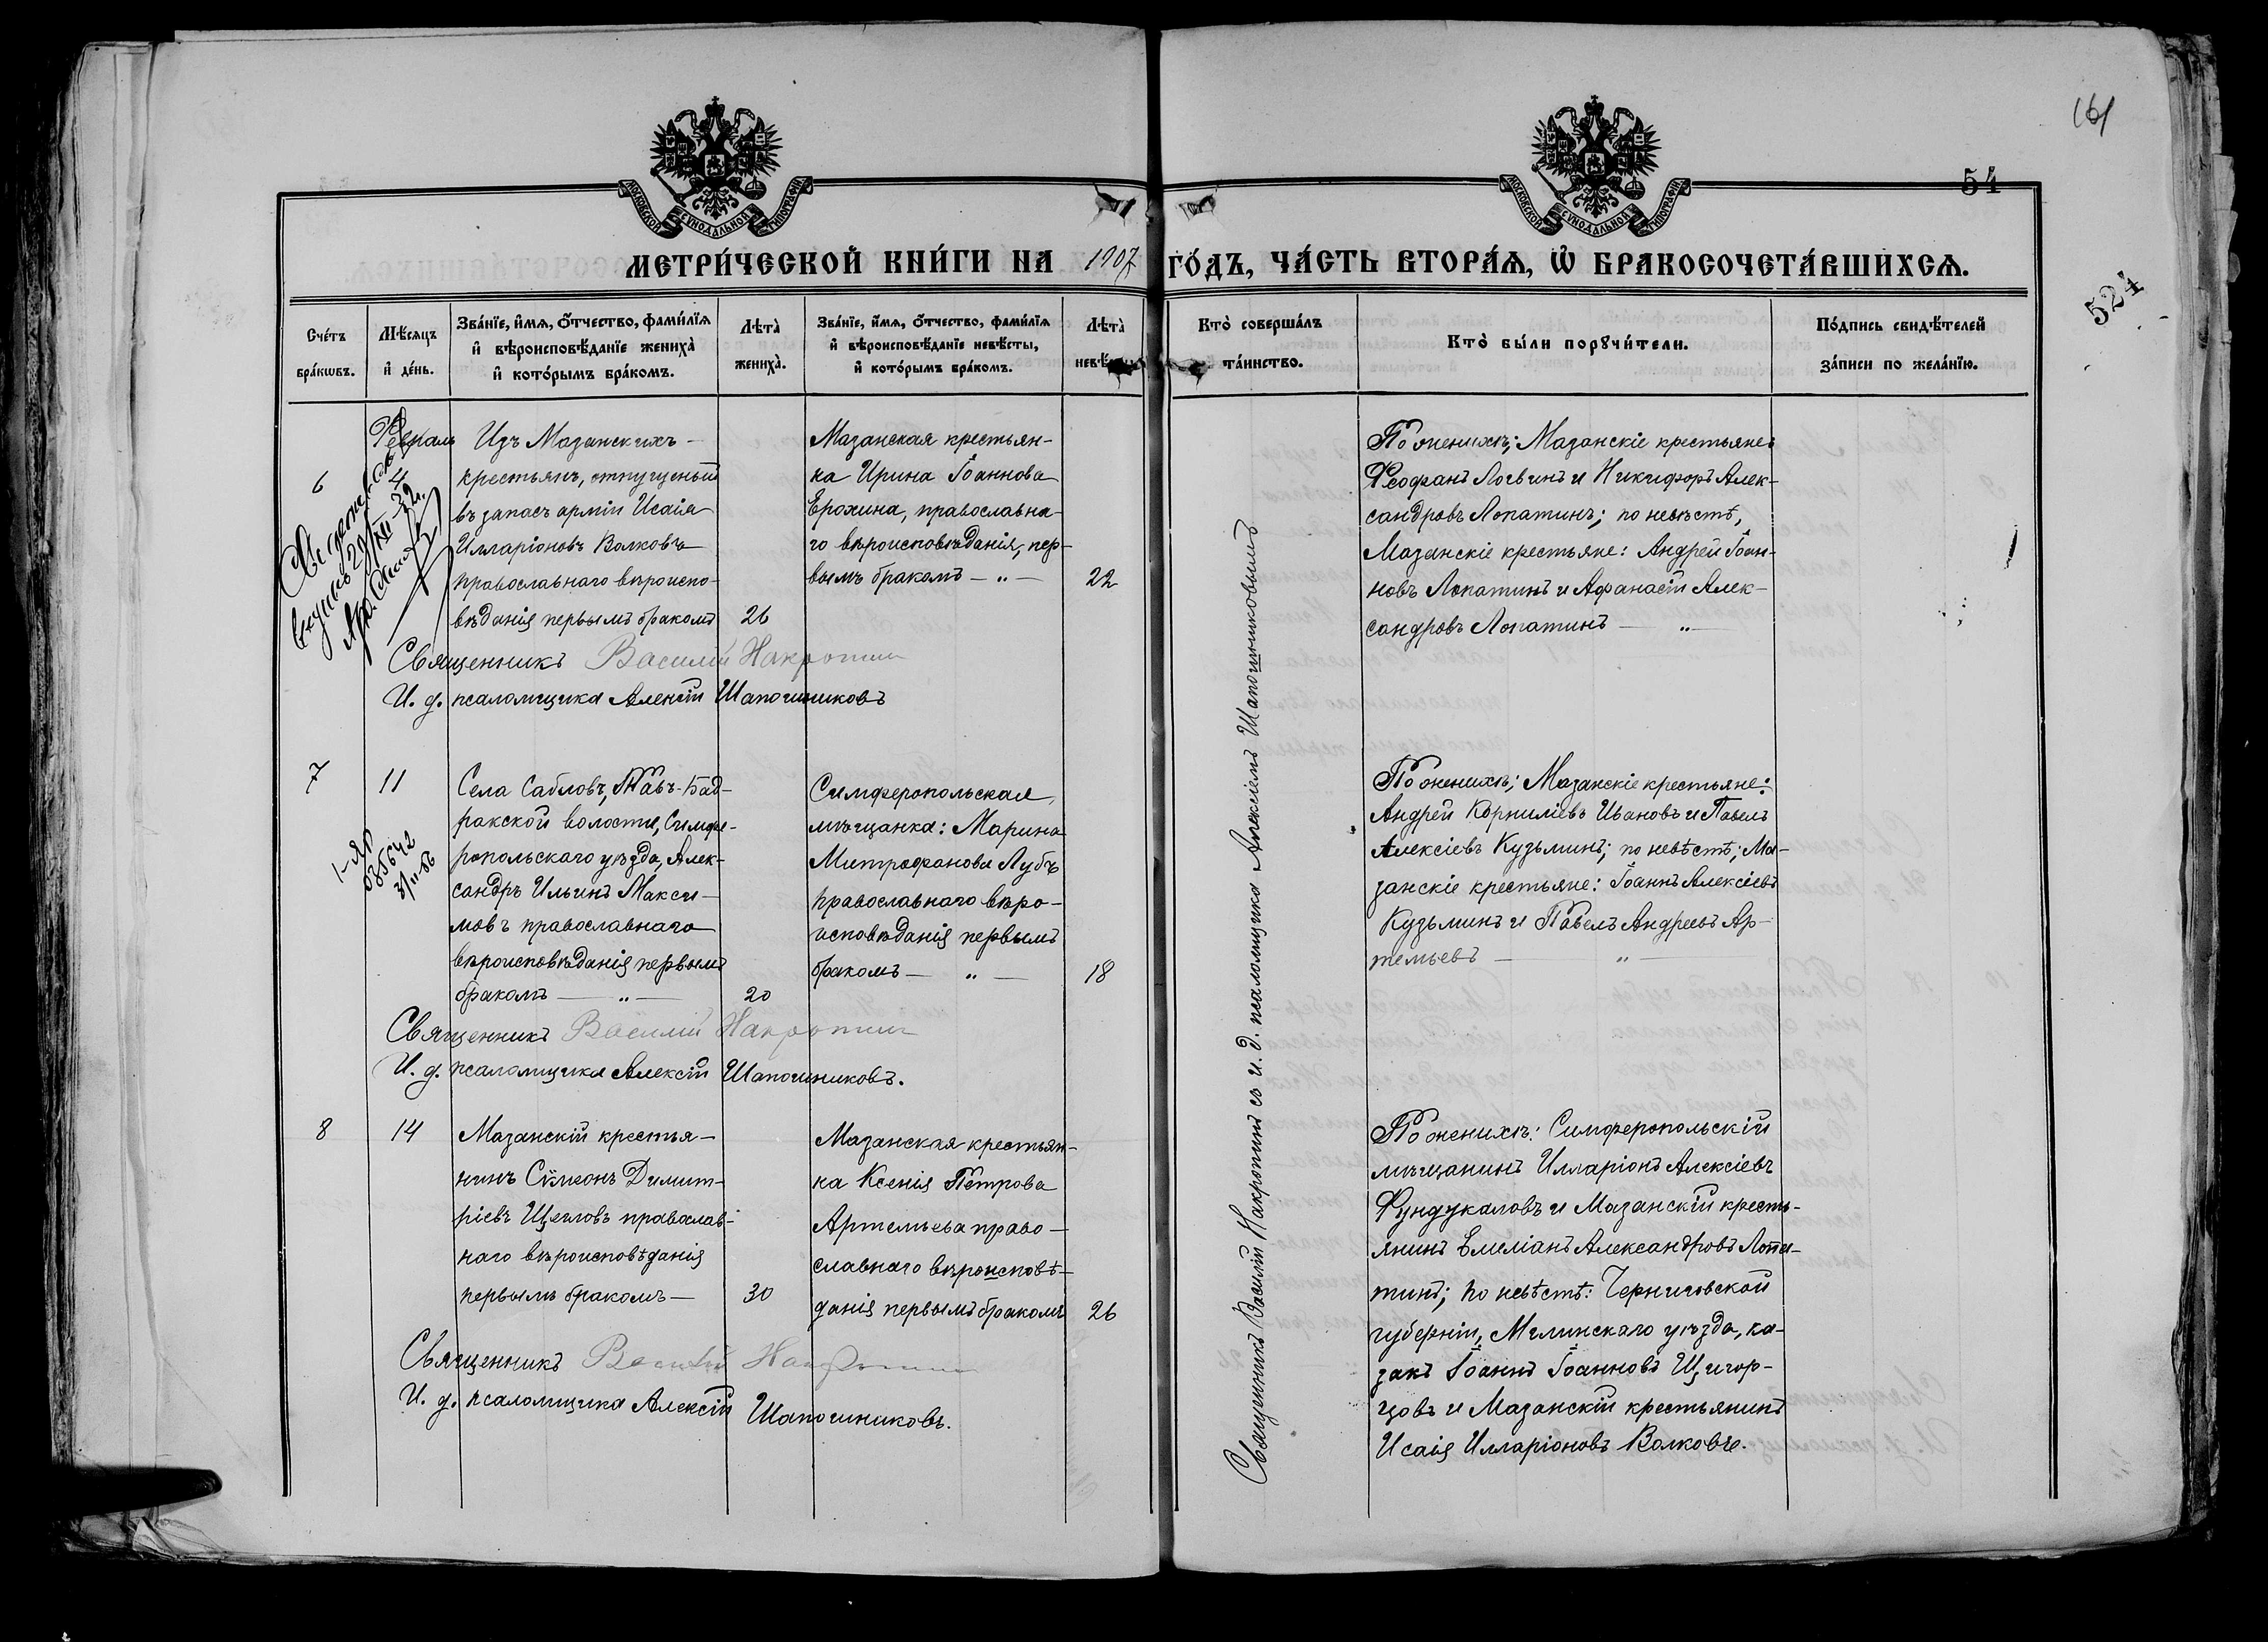 161
54
524
МОСКОВСКОЙ СѴНОДАЛЬНОЙ ТИПОГРАФІИ
МОСКОВСКОЙ СѴНОДАЛЬНОЙ ТИПОГРАФІИ
МЕТРИ́ЧЕСКОЙ КНИ́ГИ НА 1907 ГО́ДЪ, ЧА́СТЬ ВТОРА́Я, Ѽ БРАКОСОЧЕТА́ВШИХСЯ.
Сче́тъ бра́кѡвъ.
Мѣ́сяцъ и҆ де́нь.
Зва́нїе, и҆́мя, ѻ҆́тчество, фами́лїя
и҆ вѣроисповѣ́данїе жениха̀
и҆ кото́рымъ бра́комъ.
Лѣта̀ жениха̀.
Зва́нїе, и҆́мя, ѻ҆́тчество, фами́лїя
и҆ вѣроисповѣ́данїе невѣ́сты,
и҆ кото́рымъ бра́комъ.
Лѣта̀
Кто̀ соверша́лъ
та́инство.
Кто̀ бы́ли порꙋчи́тели.
По́дпись свидѣ́телей
за́писи по жела́нїю.
6
Февраль
4
Изъ Мазанскихъ
крестьянъ, отпущеный
въ запасъ арміи Исаія
Илларіоновъ Волковъ
православнаго вѣроиспо-
вѣданія первымъ бракомъ
26
Мазанская крестьян-
ка Ирина Іоаннова
Ерохина, православна-
го вѣроисповѣданія, пер-
вымъ бракомъ — „ —
22
По женихѣ; Мазанскіе крестьяне
Феофанъ Логвинъ и Никифоръ Алек-
сандровъ Лопатинъ; по невѣстѣ,
Мазанскіе крестьяне: Андрей Іоан-
новъ Лопатинъ и Афанасій Алек-
сандровъ Лопатинъ — „ —
Священникъ Василій Накропин
И. д. псаломщика Алексій Шапошниковъ
7
11
Села Саблов, Тавъ-Бад-
ракской волости, Симфе-
ропольскаго уѣзда, Алек-
сандръ Ильинъ Макси-
мовъ православнаго
вѣроисповѣданія первымъ
бракомъ — „ —
20
Симферопольская
мѣщанка: Марина
Митрофанова Лубъ
православнаго вѣро-
исповѣданія первымъ
бракомъ — „ —
18
По женихѣ; Мазанскіе крестьяне:
Андрей Корниліевъ Ивановъ и Павелъ
Алексіевъ Кузьминъ; по невѣстѣ; Ма-
занскіе крестьяне: Іоаннъ Алексіевъ
Кузьминъ и Павелъ Андреевъ Ар-
темьевъ — „ —
Священникъ Василій Накропин
И. д. псаломщика Алексій Шапошниковъ.
8
14
Мазанскій крестья-
нинъ Сѵмеонъ Димит-
ріевъ Щегловъ православ-
наго вѣроисповѣданія
первымъ бракомъ —
30
Мазанская крестьян-
ка Ксенія Петрова
Артемьева право-
славнаго вѣроисповѣ-
данія первымъ бракомъ
26
По женихѣ: Симферопольскій
мѣщанинъ Илларіонъ Алексіевъ
Фундукаловъ и Мазанскій кресть-
янинъ Емеліанъ Александровъ Лопа-
тинъ; по невѣстѣ: Черниговской
губерніи, Мглинскаго уѣзда, ка-
закъ Іоаннъ Іоанновъ Щигор-
цовъ и Мазанскій крестьянинъ
Исаія Илларіоновъ Волковъ.
Священникъ Василій Накропин
И. д. псаломщика Алексій Шапошниковъ.
Священникъ Василій Накропинъ съ и. д. псаломщика Алексіемъ Шапошниковымъ